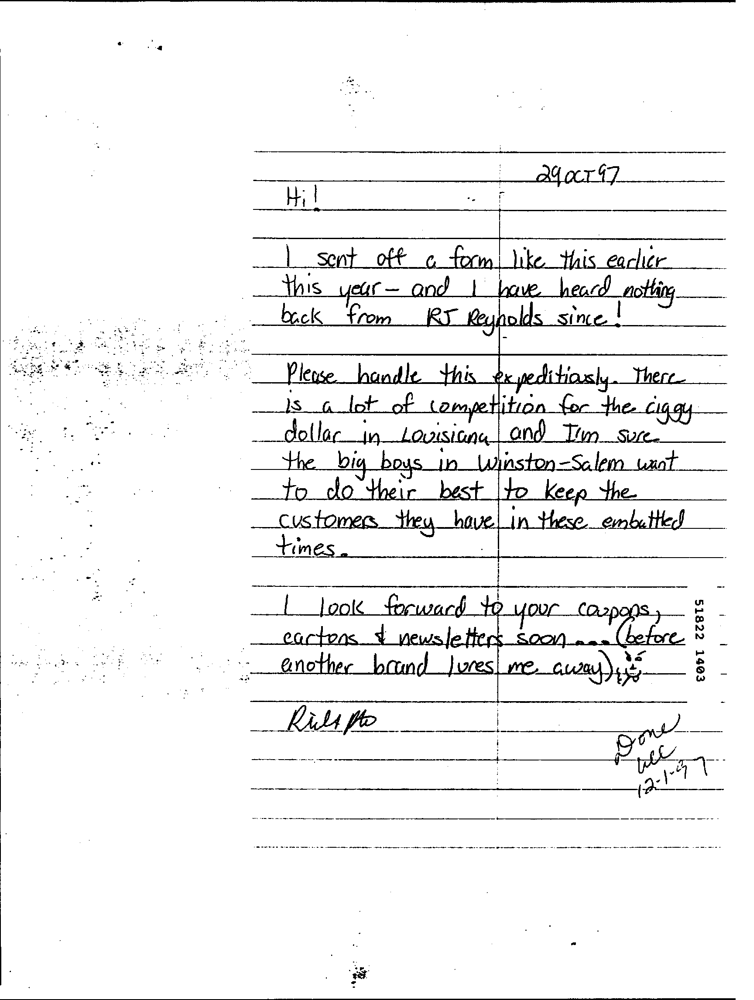 29 OCT 97
Hi!
I sent off a form like this earlier
this year – and I have heard nothing
back from RJ Reynolds since!
Please handle this expeditiously. There
is a lot of competition for the ciggy
dollar in Louisiana and I'm sure
the big boys in Winston-Salem want
to do their best to keep the
customers they have in these embattled
times.
I look forward to your coupons,
cartons & newsletters soon... (before
another brand lures me away)
51822 1403
Done
12-1-97